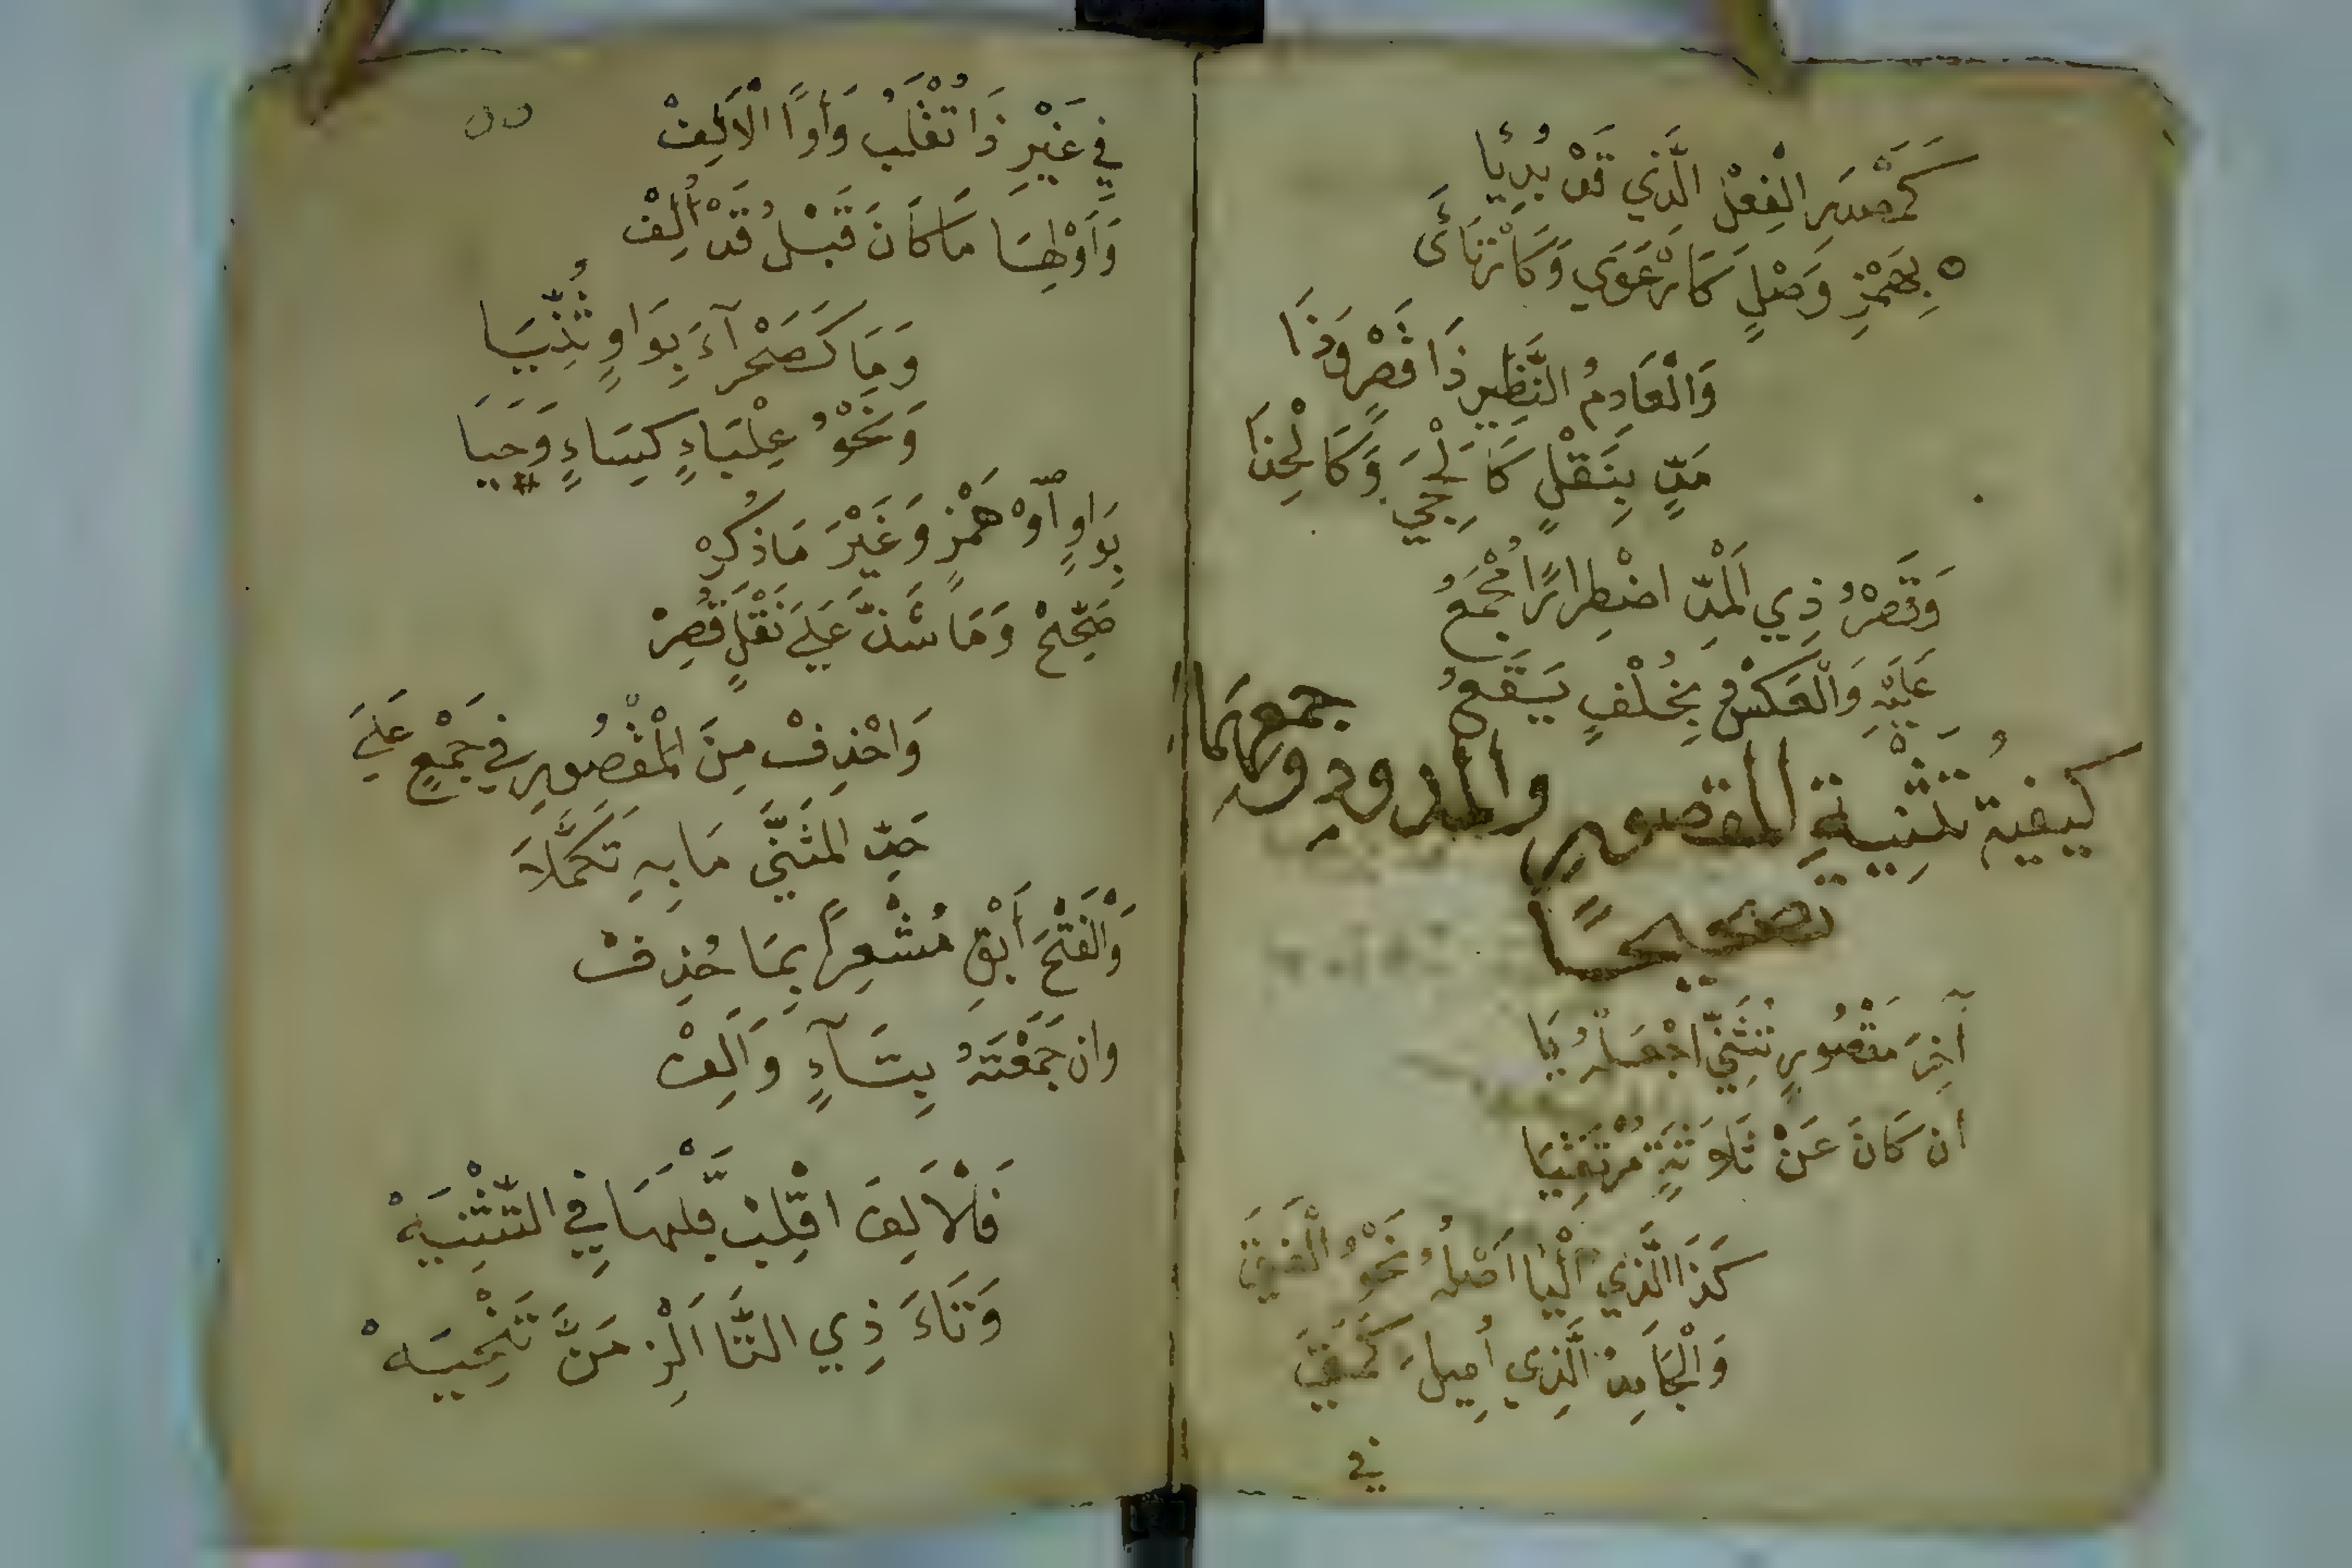 كَمَصْدَرِ الْفِعْلِ الَّذِي قَدْ بُدِئَا
بِهَمْزِ وَصْلٍ كَارْعَوَي وَكَارْتَأَى
وَالْعَادِمُ النَّظِيرِ ذَا قَصْرٍ وَذَا
مَدٍّ بِنَقْلٍ كَالْحِجَي وَكَالْحِذَا
وَقَصْرُ ذِي الْمَدِّ اضْطِرَارًا مُجْمَعُ
عَلَيْهِ وَالْعَكْسُ بِخُلْفٍ يَقَعُ
كيفيةُ تَثْنِيَةِ المقصورِ والممدودِ وجمعهمَا
تصحيحًا
آخِرَ مَقْصُورٍ تُثَنِّي اجْعَلْهُ يَا
ان كَانَ عَنْ ثَلَاثَةٍ مُرْتَقِيَا
كَذَا الَّذِي الْيَا اَصْلُهُ نَحْوُ الْفَتَى
وَالْجَامِدُ الَّذِي أُمِيلَ كَمَتَى
في
٥٥
فِي غَيْرِ ذَا تُقْلَبُ وَاوًا الْاَلِفْ
وَاَوْلِهَا مَا كَانَ قَبْلُ قَدْ أُلِفْ
وَمَا كَصَحْرَآءَ بِوَاوٍ ثُنِّيَا
وَنَحْوُ عِلْبَاءٍ كِسَاءٍ وَحَيَا
بِوَاوٍ اَوْ هَمْزٍ وَغَيْرَ مَا ذُكِرْ
صَحِّحْ وَمَا شَذَّ عَلَي نَقْلٍ قُصِرْ
وَاحْذِفْ مِنَ الْمَقْصُورِ فِي جَمْعٍ عَلَي
حَدِّ الْمُثَنَّي مَا بِهِ تَكَمَّلَا
وَالْفَتْحَ أَبْقِ مُشْعِرًا بِمَا حُذِفْ
وان جَمَعْتَهُ بِتَآءٍ وَاَلِفْ
فَالْاَلِفَ اقْلِبْ قَلْبَهَا فِي التَّثْنِيَهْ
وَتَاءَ ذِي التَّا اَلْزِمَنَّ تَنْحِيَهْ